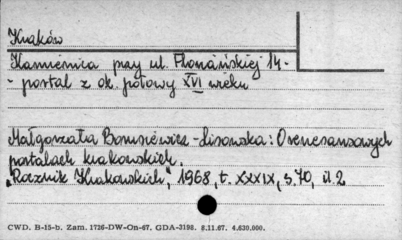 Kraków
Kamienica przy ul. Floriańskiej 14-
- portal z ok. połowy XVI wieku
Małgorzata Borusiewicz-Lisowska: O renesansowych
portalach krakowskich.
"Rocznik Krakowskich", 1968, t. XXXIX, s. 70, il. 2
CWD. B-15-b. Zam. 1726-DW-On-67. GDA-3198. 8.11.67. 4.630.000.